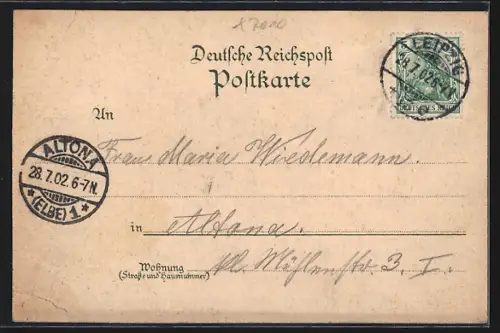 Deutsche Reichspost
Postkarte
LEIPZIG
28.7.02.
An
Frau Maria Wiedemann.
ALTONA
28.7.02.6-7N.
* (ELBE) 1 *
in Altona.
Wohnung
(Straße und Hausnummer)
kl. Mühlenstr. 3. I.